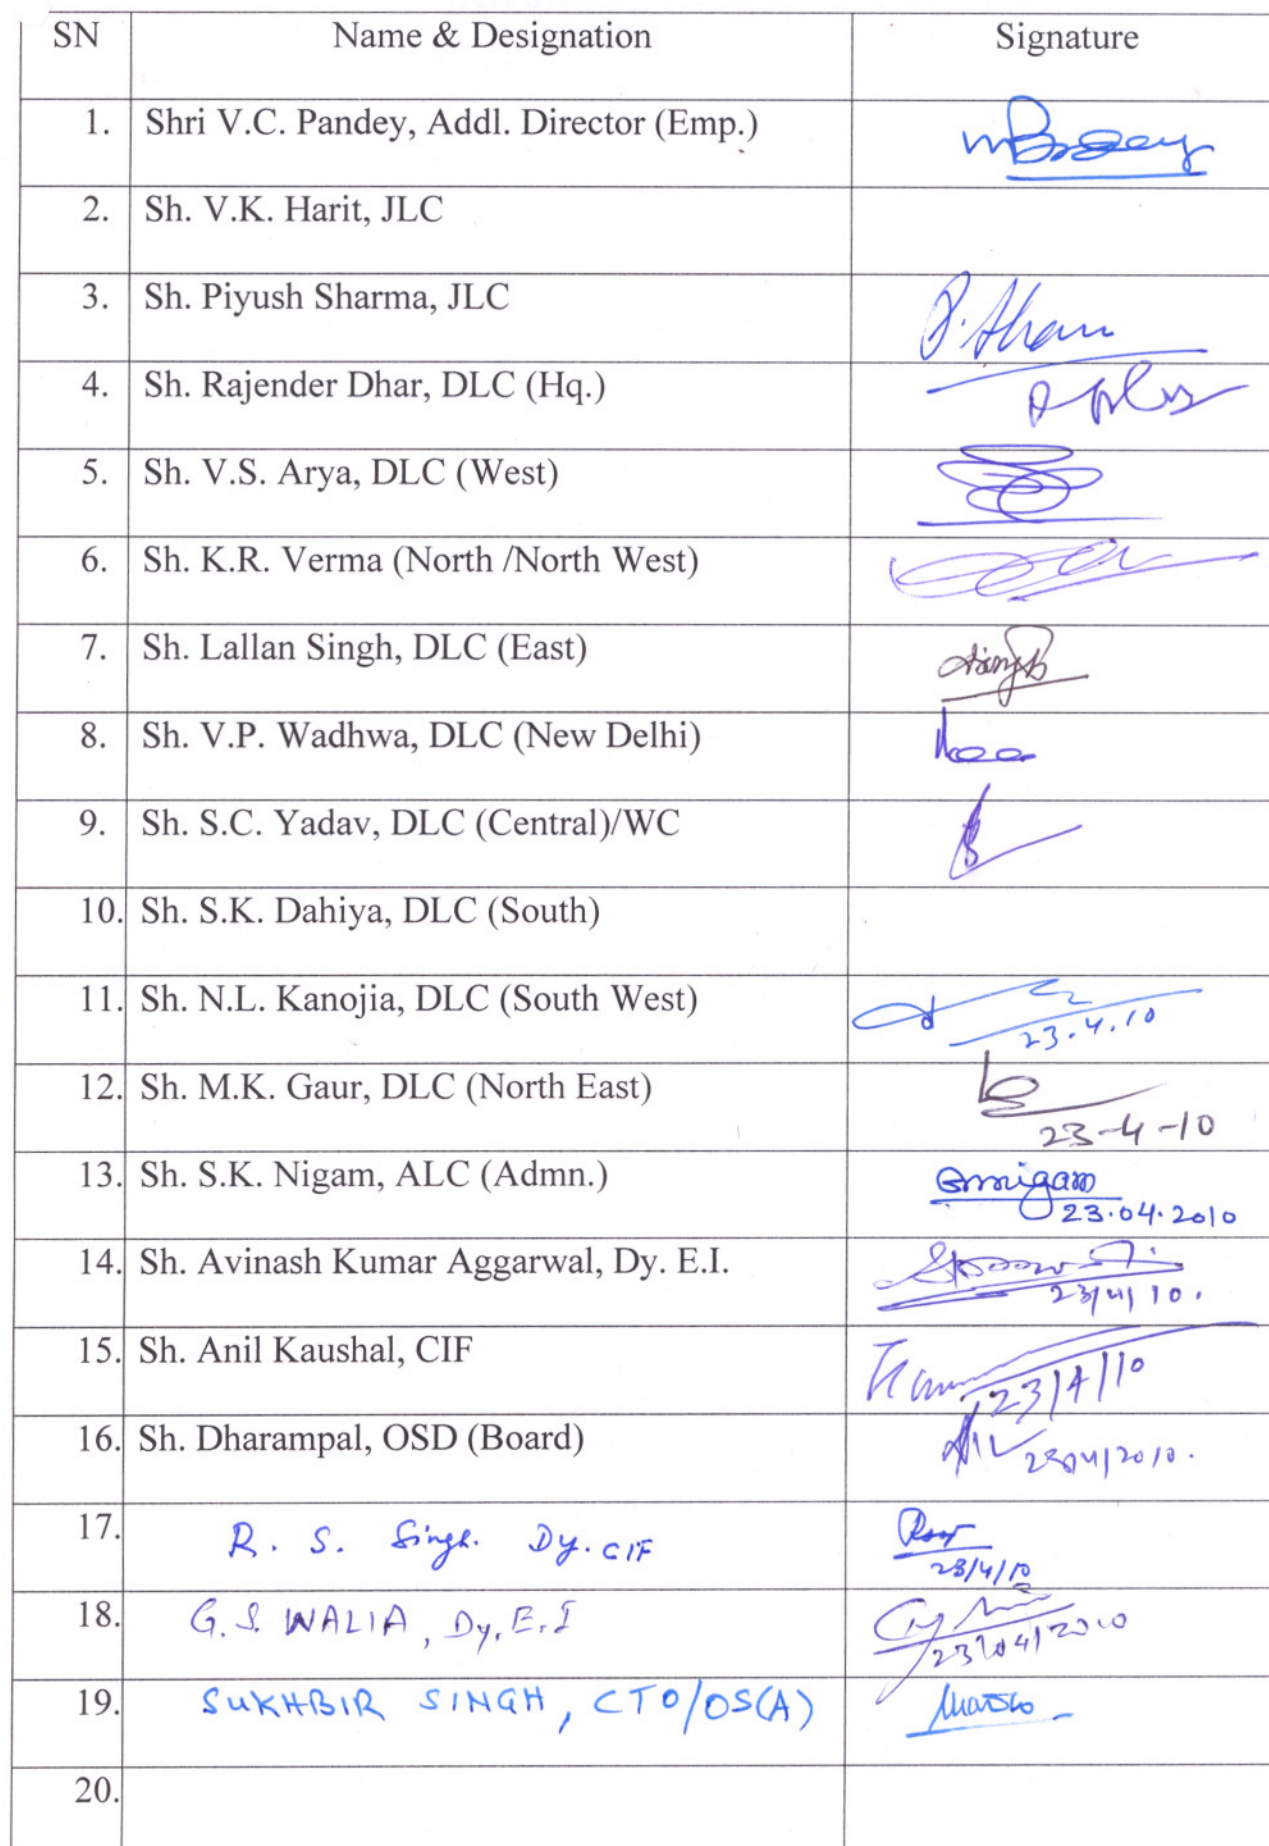 SN Name & Designation Signature
1. Shri V.C. Pandey, Addl. Director (Emp.)
2. Sh. V.K. Harit, JLC
3. Sh. Piyush Sharma, JLC
4. Sh. Rajender Dhar, DLC (Hq.)
5. Sh. V.S. Arya, DLC (West)
6. Sh. K.R. Verma (North /North West)
7. Sh. Lallan Singh, DLC (East)
8. Sh. V.P. Wadhwa, DLC (New Delhi)
9. Sh. S.C. Yadav, DLC (Central)/WC
10. Sh. S.K. Dahiya, DLC (South)
11. Sh. N.L. Kanojia, DLC (South West)
23.4.10
12. Sh. M.K. Gaur, DLC (North East)
23-4-10
13. Sh. S.K. Nigam, ALC (Admn.)
23.04.2010
14. Sh. Avinash Kumar Aggarwal, Dy. E.I.
23/4/10.
15. Sh. Anil Kaushal, CIF
23/4/10
16. Sh. Dharampal, OSD (Board)
23/04/2010.
17. R. S. Singh. Dy. CIF
23/4/10
18. G.S. WALIA, Dy. E.I
23/04/2010
19. SUKHBIR SINGH, CTO/OS(A)
20.